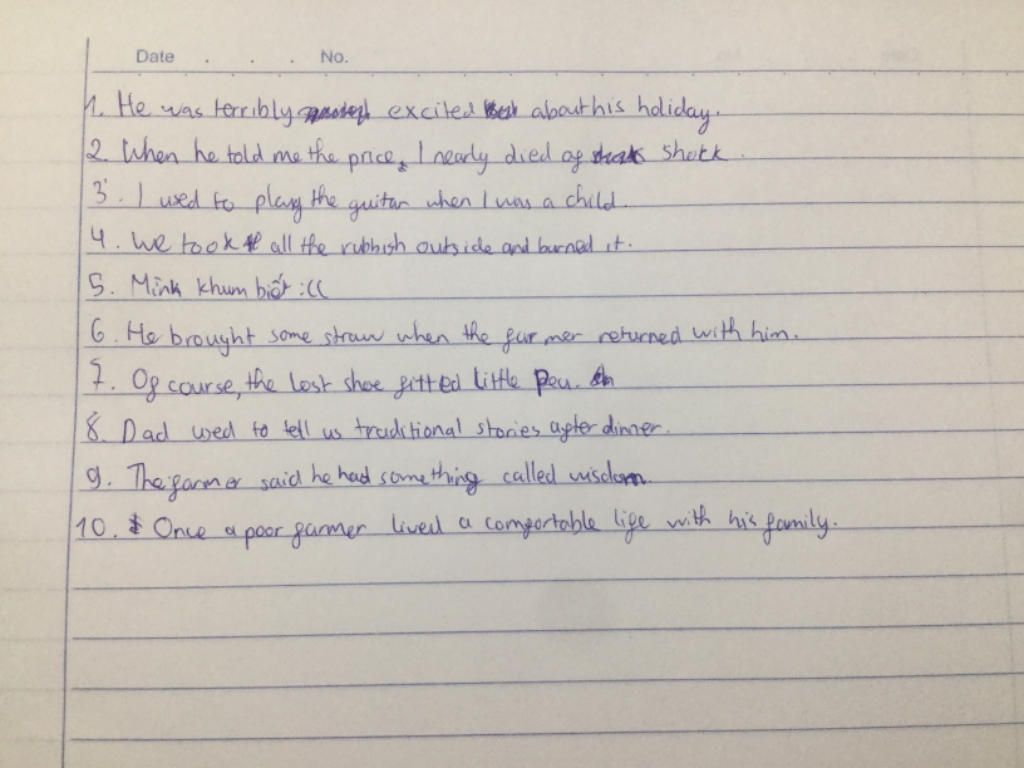 Date . . . No.
1. He was terribly excited about his holiday.
2. When he told me the price, I nearly died of shokk.
3. I used to play the guitar when I was a child.
4. We took all the rubbish outside and burned it.
5. Mink khum biết :((
6. He brought some straw when the farmer returned with him.
7. Of course, the lost shoe fitted little Pea.
8. Dad used to tell us traditional stories after dinner.
9. The farmer said he had something called wisdom.
10. Once a poor farmer lived a comfortable life with his family.